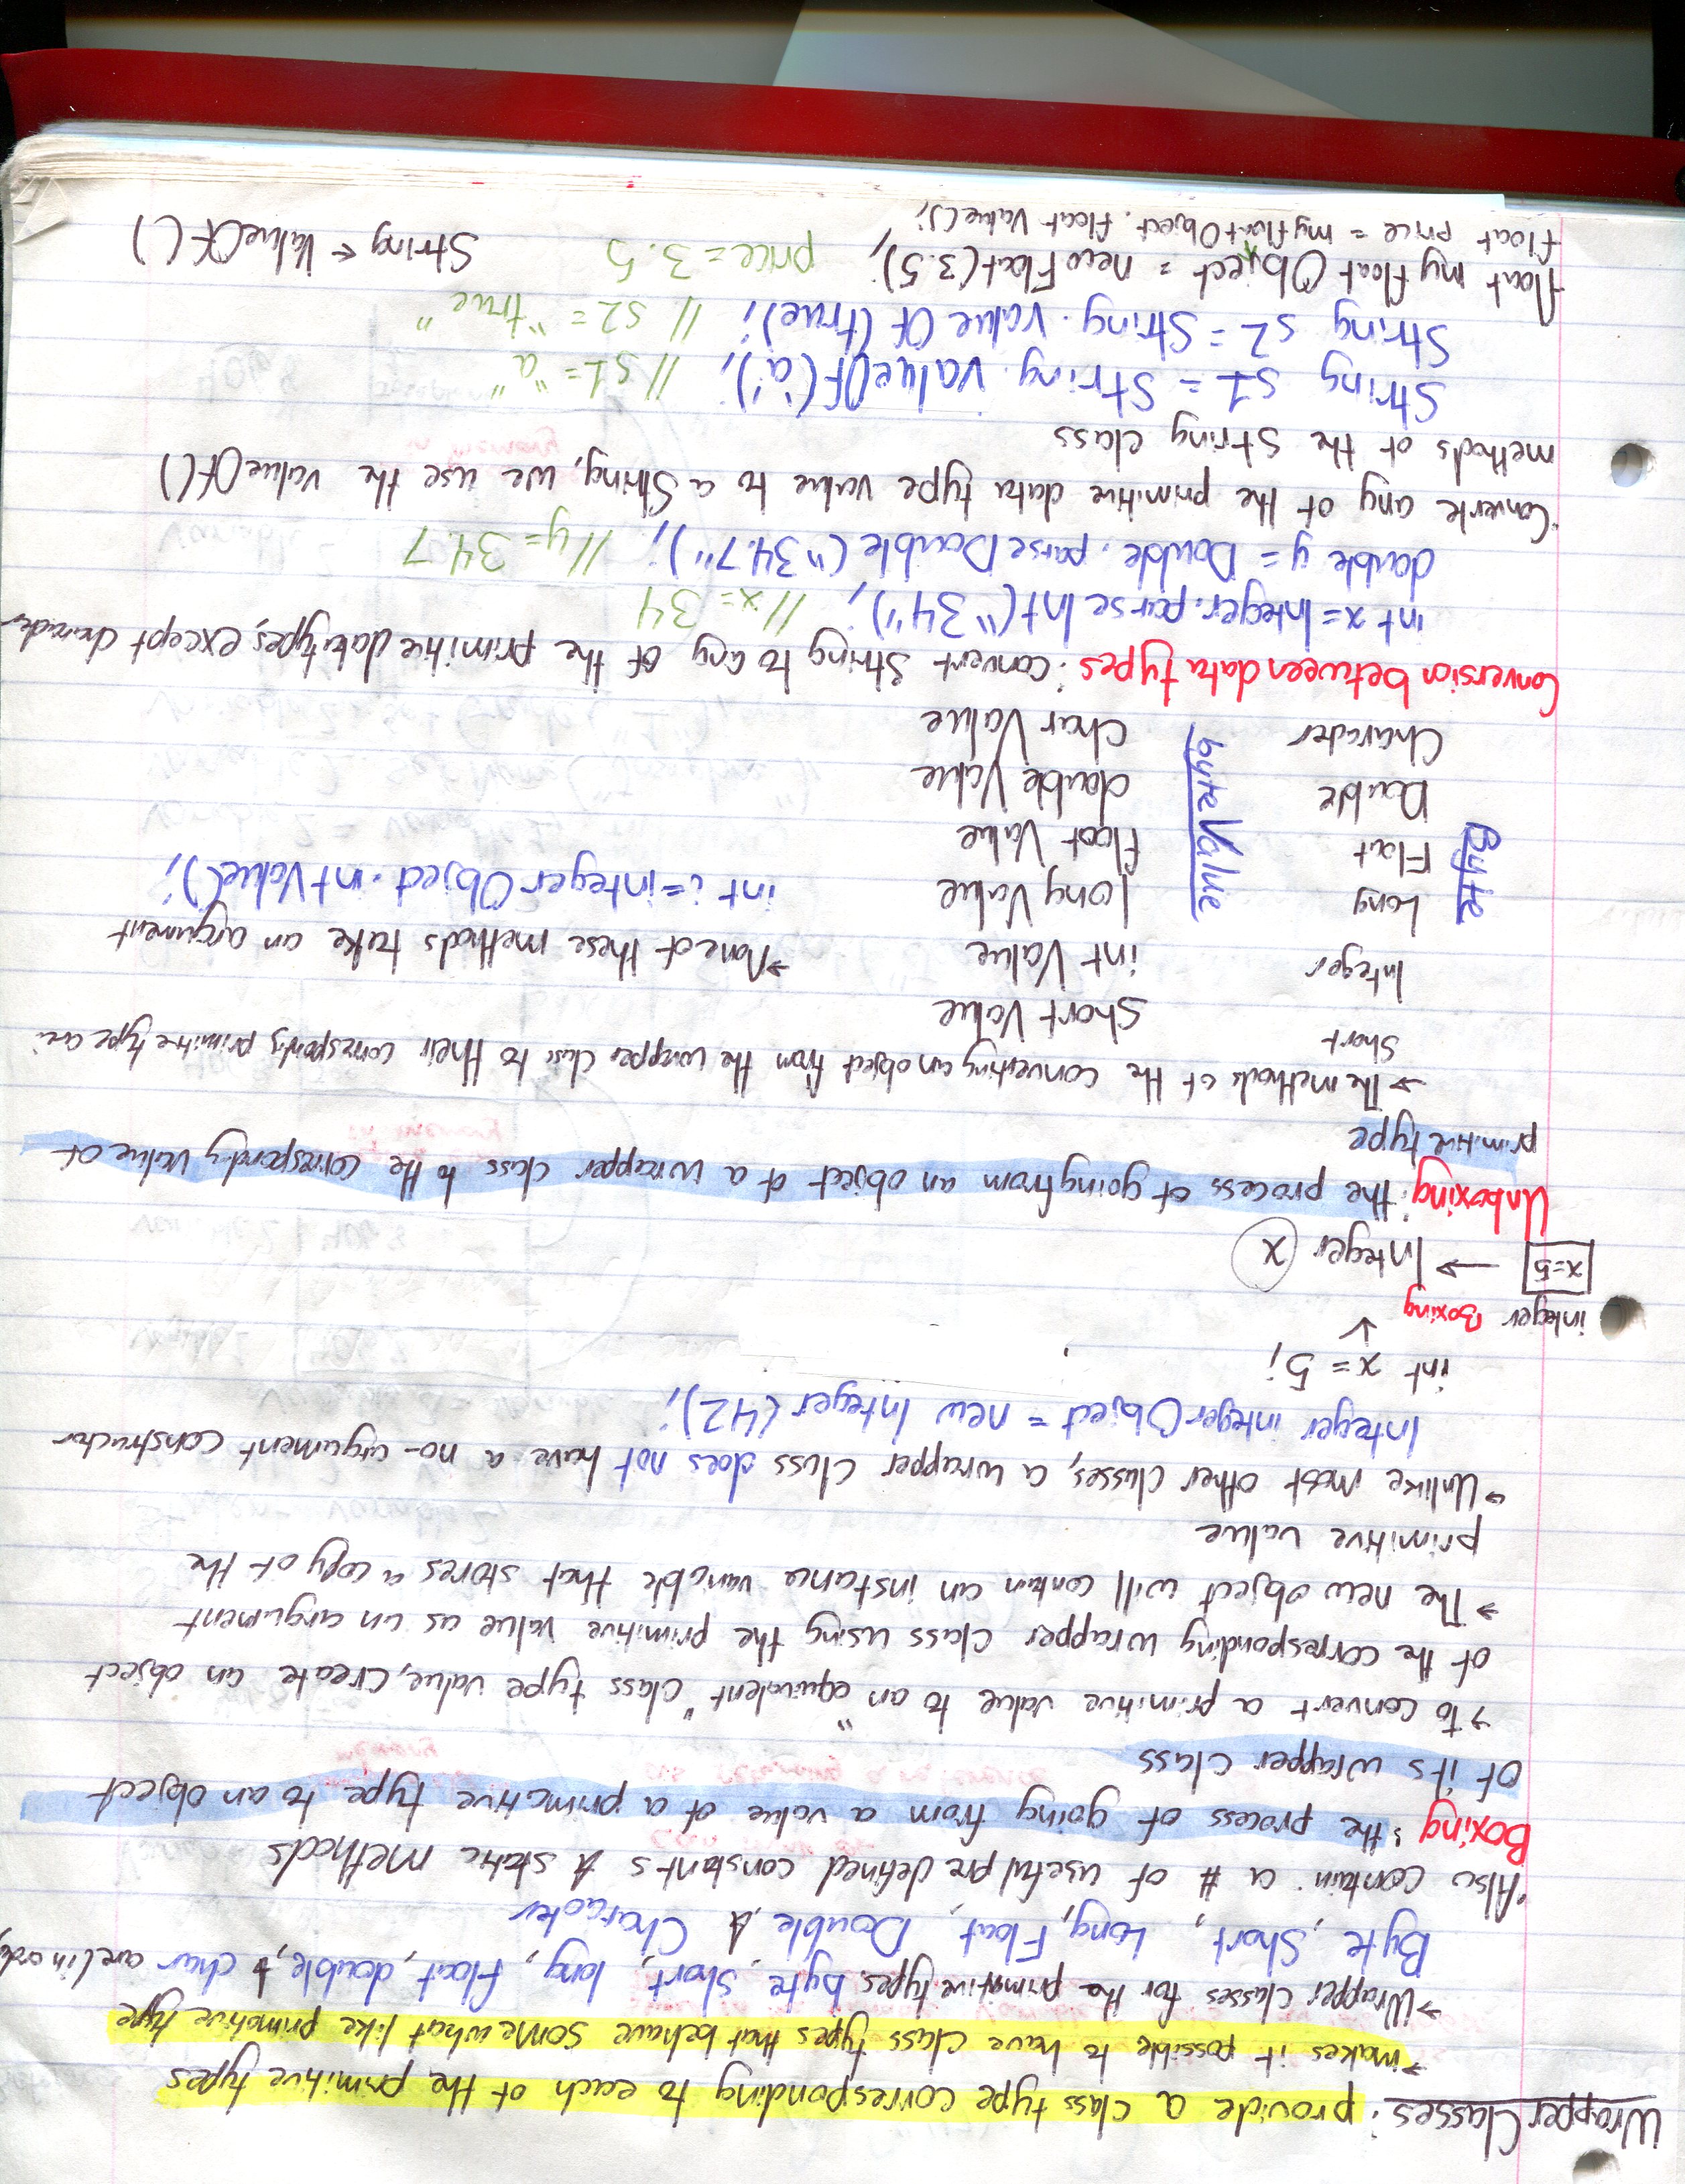 Wrapper Classes: provide a class type corresponding to each of the primitive types
→ makes it possible to have class types that behave somewhat like primative type
→ Wrapper classes for the primative types byte, short, long, float, double, & char are (in order)
Byte, Short, Long, Float, Double, & Character
*Also contain a # of useful predefined constants & static methods
Boxing: the process of going from a value of a primative type to an object
of its wrapper class
→ to convert a primitive value to an "equivalent" class type value, create an object
of the corresponding wrapper class using the primitive value as an argument
→ The new object will contain an instance variable that stores a copy of the
primitive value
→ Unlike most other classes, a wrapper class does not have a no-argument constructor
Integer integerObject = new Integer (42);
int x = 5;
integer Boxing
x=5 → Integer x
Unboxing: the process of going from an object of a wrapper class to the corresponding value of
primitive type
→ The methods of the converting an object from the wrapper class to their corresponding primitive type are:
Short Short Value
Integer int Value → None of these methods take an argument
Byte Long byteValue long Value int i = integerObject.intValue();
Float float Value
Double double Value
Character Char Value
Conversion between data types: convert String to any of the primitive datatypes, except character
int x = Integer.parseInt("34"); // x = 34
double y = Double.parseDouble("34.7"); // y = 34.7
Converte any of the primitive data type value to a String, we use the valueOf()
methods of the String class
String s1 = String.valueOf('a'); // s1 = "a"
String s2 = String.valueOf(true); // s2 = "true"
float myfloat Object = new Float(3.5); price = 3.5 String ← ValueOf()
float price = myfloatObject.floatValue();